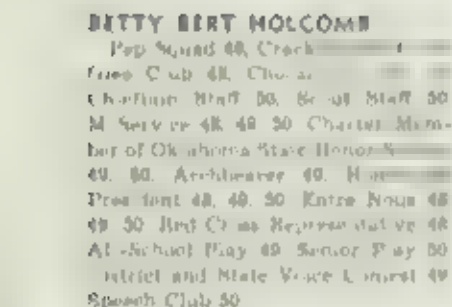 BETTY BERT HOLCOMB
Pep Squad 48, Creek
Club 48, Choral
Chieftain Staff 50, Scout Staff 50
M Service 48 49 50 Charter Mem-
ber of Oklahoma State Honor
49, 50, 49,
President 48, 49, 50 Entre Nous 48
49 50 Red Cross Representative 48
All-School Play 49 Senior Play 50
District and State Voice Contest 49
Speech Club 50